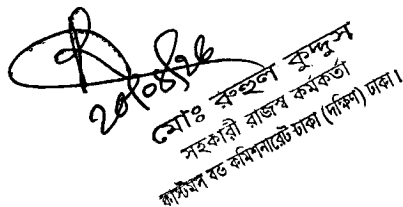 ২০/০৪/২৬
মোঃ রুহুল কুদ্দুস
সহকারী রাজস্ব কর্মকর্তা
কাস্টমস বন্ড কমিশনারেট ঢাকা (দক্ষিণ) ঢাকা।